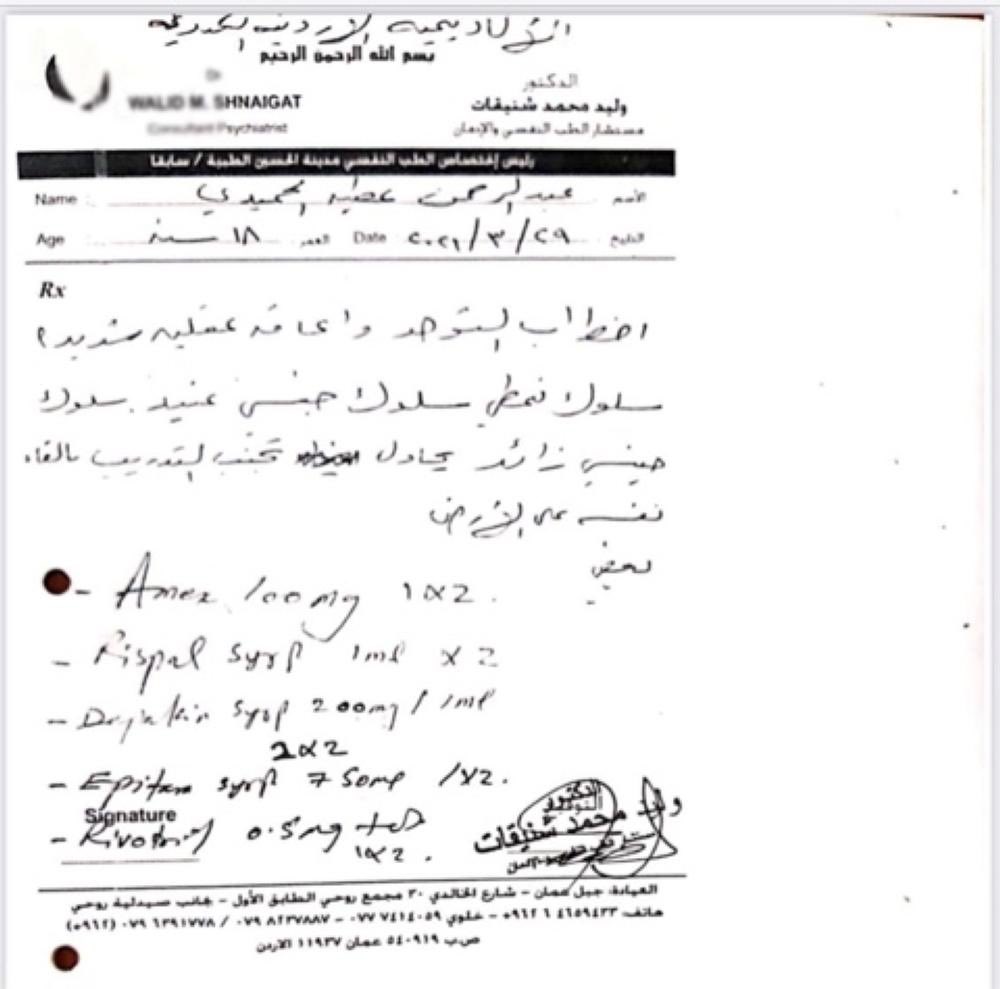 بسم الله الرحمن الرحيم
Dr
WALID M. SHNAIGAT
Consultant Psychiatrist
الدكتور
وليد محمد شنيقات
مستشار الطب النفسي والإدمان
رئيس إختصاص الطب النفسي مدينة الحسين الطبية / سابقا
Name عبد الرحمن عطيه الاسم
Age العمر ١٨ سنة Date ٢٠٢١/٣/٢٩ التاريخ
Rx
اضطراب التوحد واعاقه عقليه شديده
سلوك نمطي سلوك جنسي عنيد . سلوك
جنسي زائد يحاول تجنب التدريب بالقاء
نفسه على الأرض
- Amex 100 mg 1x2 .
- Rispal syrp 1ml x 2
- Depakin syrp 200mg / 1ml
2x2
- Epitam syrp 750mg 1x2.
Signature
- Rivotril 0.5mg tab
1x2 .
الدكتور
وليد محمد شنيقات
العيادة: جبل عمان - شارع الخالدي ٣٠ مجمع روحي الطابق الأول - جانب صيدلية روحي
هاتف: ٤٦٥٩٤٣٣ ٦ ٩٦٢+ - خلوي ٠٧٧٧٤١٤٠٥٩ - ٠٧٩٨٢٣٧٨٨٧ / ٠٧٩٦٣٩١٧٧٨ (٩٦٢+)
ص.ب ٥٤٠٩١٩ عمان ١١٩٣٧ الاردن